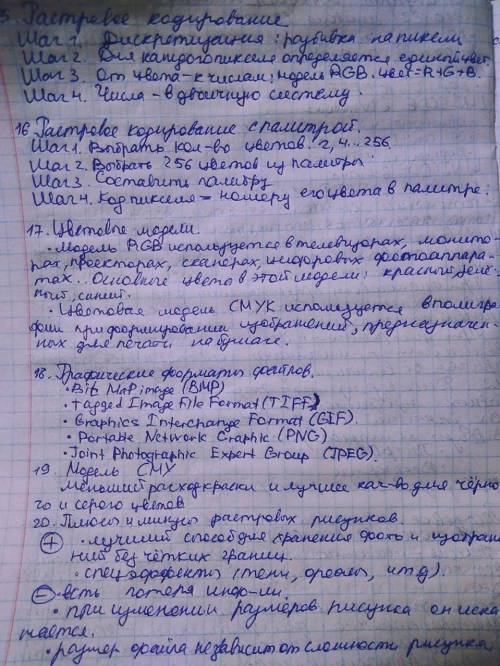 5. Растровое кодирование
Шаг 1. Дискретизация: разбивка на пиксели.
Шаг 2. Для каждого пикселя определяется единый цвет.
Шаг 3. От цвета - к числам: модель RGB. цвет = R+G+B.
Шаг 4. Числа - в двоичную систему.
16 Растровое кодирование с палитрой.
Шаг 1. Выбрать кол-во цветов: 2, 4... 256.
Шаг 2. Выбрать 256 цветов из палитры.
Шаг 3. Составить палитру
Шаг 4. Код пикселя = номеру его цвета в палитре.
17. Цветовые модели.
• Модель RGB используется в телевизорах, монито-
рах, проекторах, сканерах, цифровых фотоаппара-
тах. Основные цвета в этой модели: красный, зелё-
ный, синий.
• Цветовая модель CMYK используется в полигра-
фии при формировании изображений, предназначен-
ных для печати на бумаге.
18. Графические форматы файлов.
• Bit MaP image (BMP)
• Tagged Image File Format (TIFF)
• Graphics Interchange Format (GIF).
• Portable Network Graphic (PNG)
• Joint Photographic Expert Group (JPEG).
19. Модель CMY
Меньший расход краски и лучшее кач-во для чёрно
го и серого цветов
20. Плюсы и минусы растровых рисунков.
+ • лучший способ для хранения фото и изображе
ний без чётких границ.
• спецэффекты (тени, ореолы, и т.д).
- • есть потеря инф-ии.
• при изменении размеров рисунка он иска
жается.
• размер файла не зависит от сложности рисунка